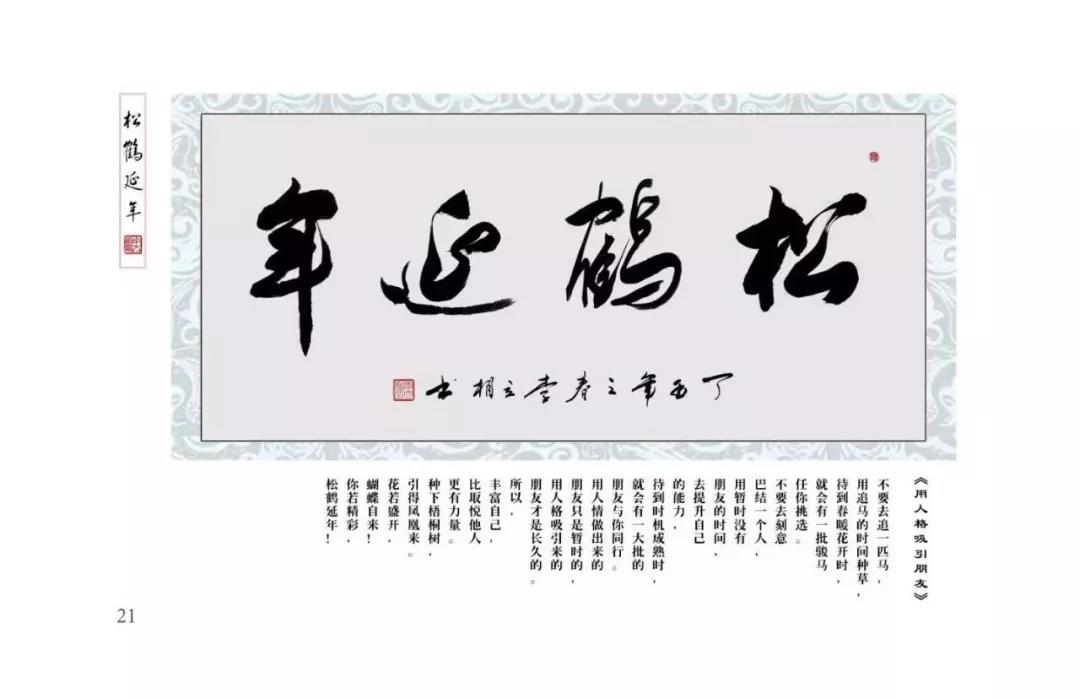 松鹤延年
松鹤延年
丁酉年之春李立书
《用人格吸引朋友》
不要去追一匹马，
用追马的时间种草，
待到春暖花开时，
就会有一批骏马
任你挑选。
不要去刻意
巴结一个人，
用暂时没有
朋友的时间，
去提升自己
的能力，
待到时机成熟时，
就会有一大批的
朋友与你同行。
用人情做出来的
朋友只是暂时的，
用人格吸引来的
朋友才是长久的。
所以，
丰富自己，
比取悦他人
更有力量。
种下梧桐树，
引得凤凰来。
花若盛开，
蝴蝶自来！
你若精彩，
松鹤延年！
21